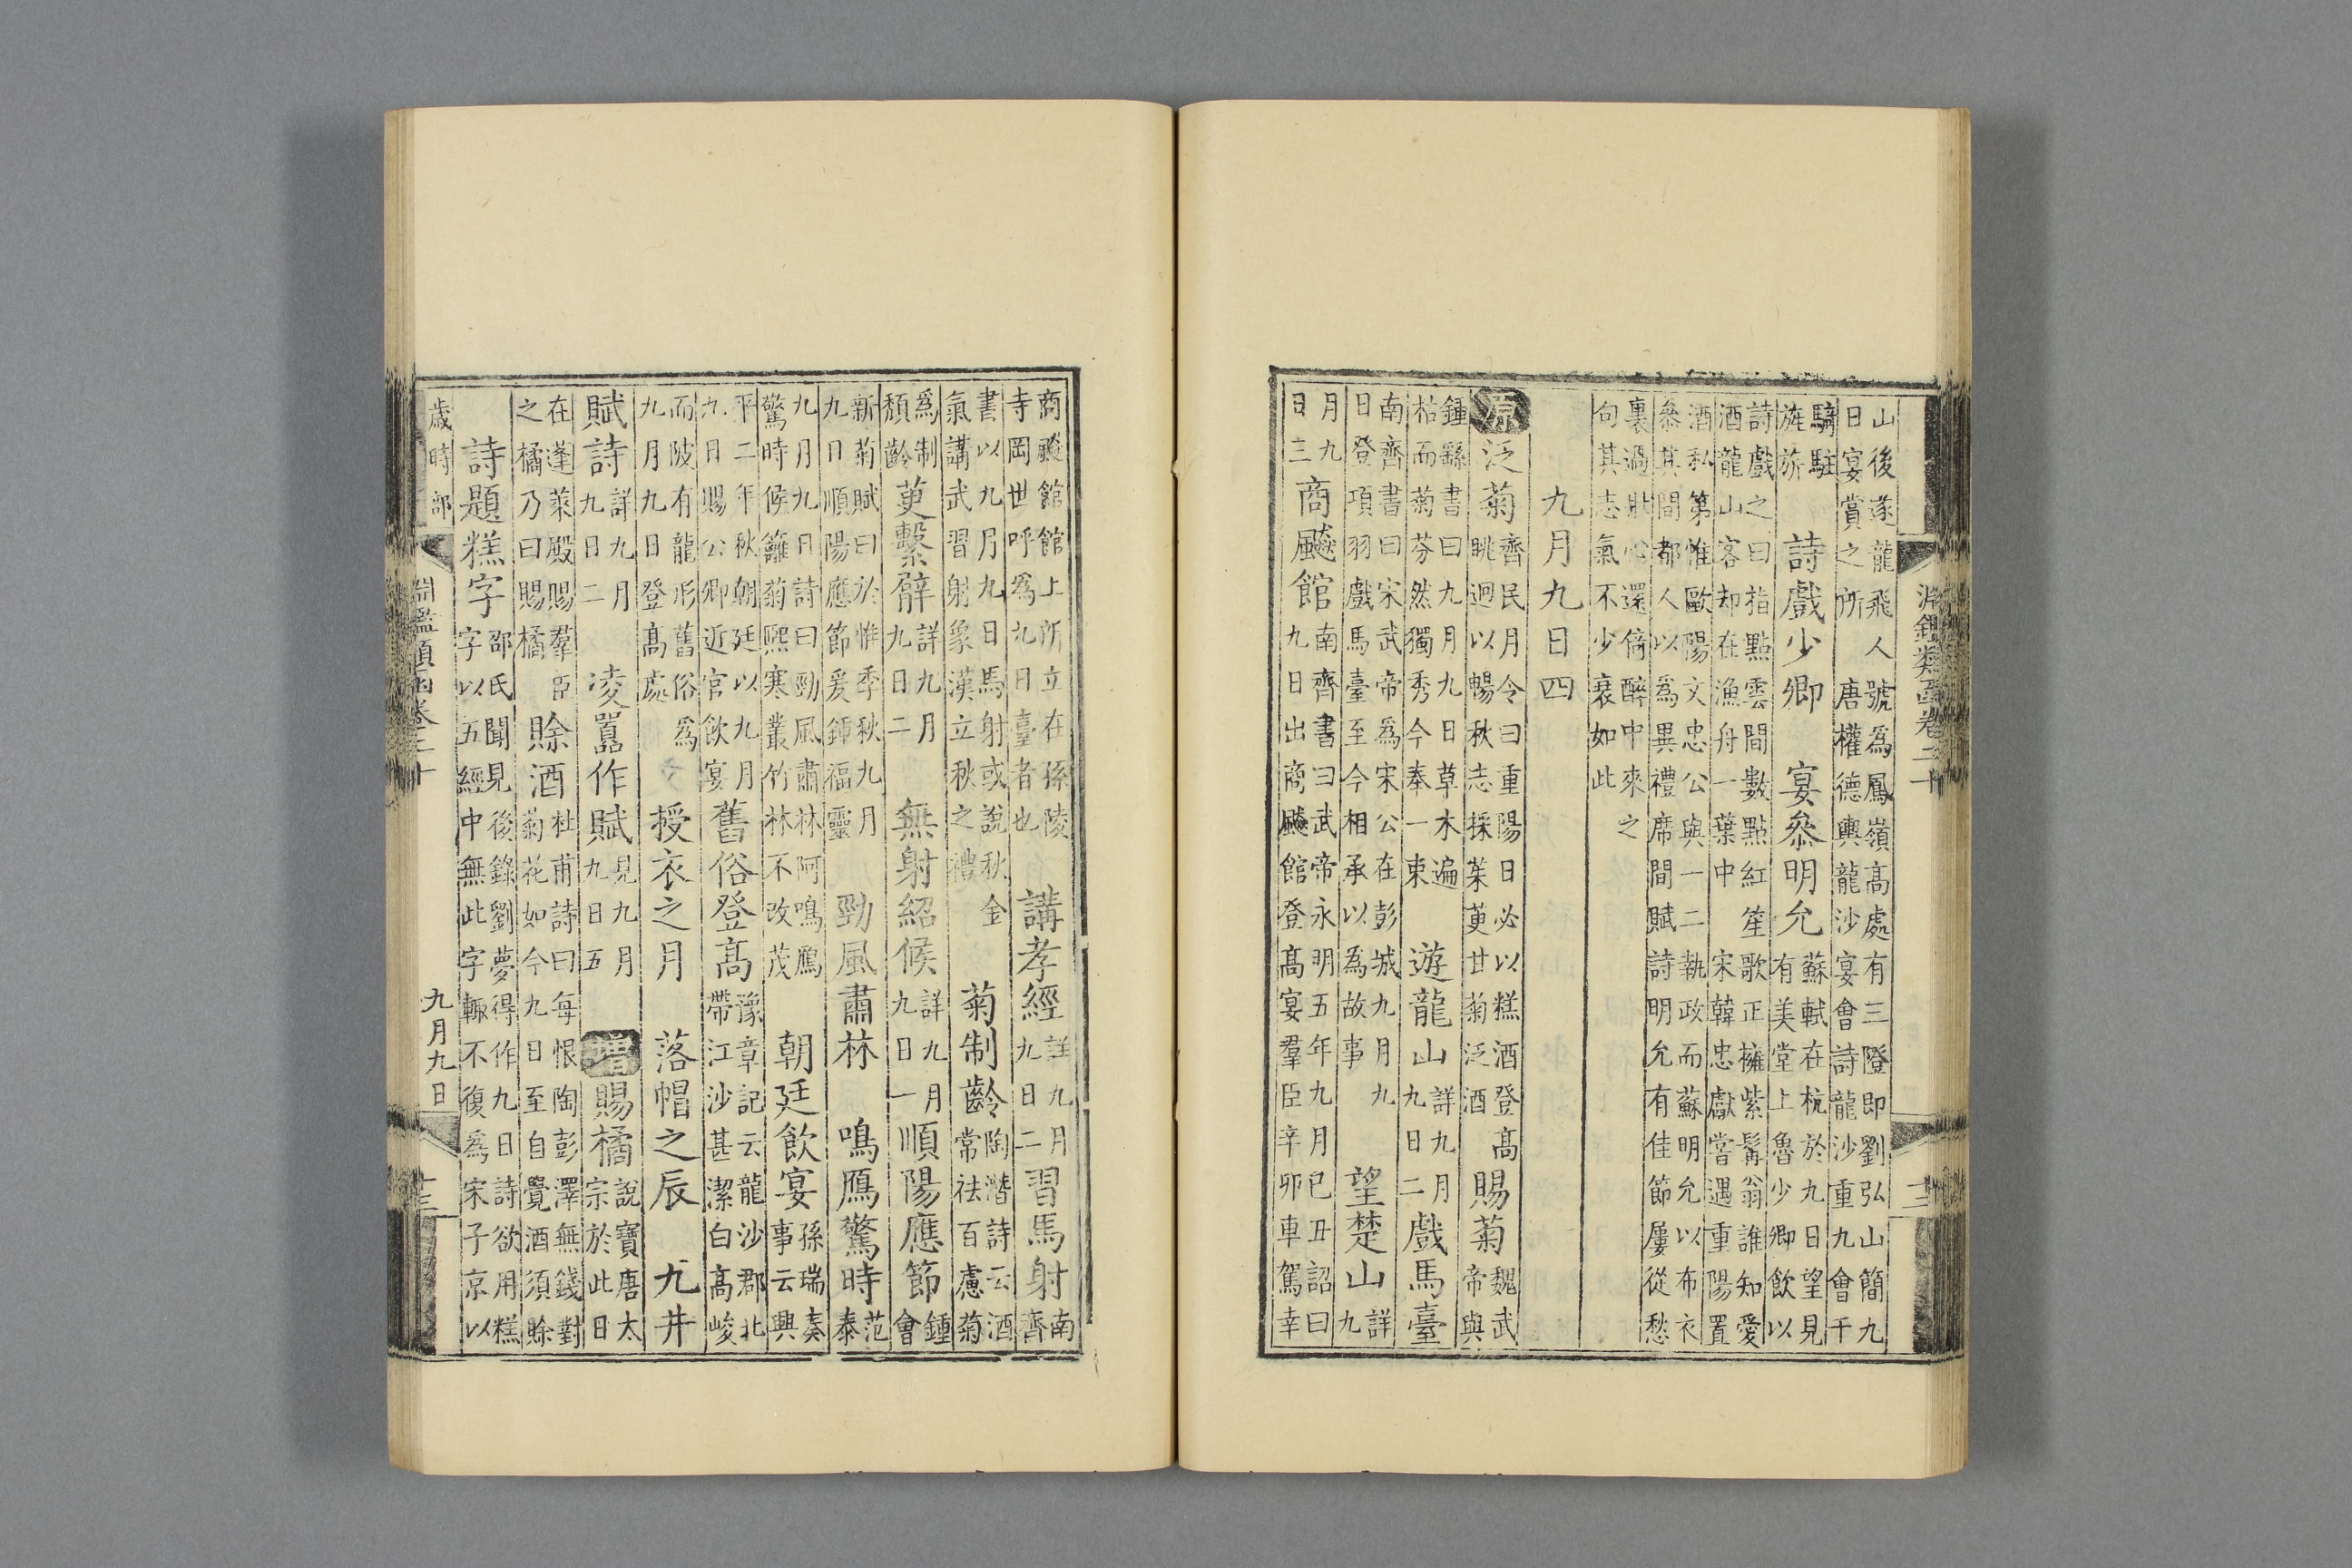 山後遂龍飛人號爲鳳嶺高處有三隥即劉弘山簡九
日宴賞之所　唐權德輿龍沙宴會詩龍沙重九會千
騎駐
旌旂
詩戲少卿　宴叅明允
蘇軾在杭於九日望見
有美堂上魯少卿飲以
詩戲之曰指點雲間數點紅笙歌正擁紫髯翁誰知愛
酒龍山客却在漁舟一葉中　宋韓忠獻嘗遇重陽置
酒私第惟歐陽文忠公與一二執政而蘇明允以布衣
叅其間都人以爲異禮席間賦詩明允有佳節屢從愁
裏過壯心還倚醉中來之
句其志氣不少衰如此
九月九日四
原泛菊
齊民月令曰重陽日必以糕酒登高
眺迥以暢秋志採茱萸甘菊泛酒
賜菊
魏武
帝與
鍾繇書曰九月九日草木遍
枯而菊芬然獨秀今奉一束
遊龍山
詳九月
九日二
戲馬臺
南齊書曰宋武帝爲宋公在彭城九月九
日登項羽戲馬臺至今相承以爲故事
望楚山
詳
九
月九
日三
商飈館
南齊書曰武帝永明五年九月巳丑詔曰
九日出商飈館登高宴羣臣辛卯車駕幸
商飈館館上所立在孫陵
寺岡世呼爲九日臺者也
講孝經
詳九月
九日二
習馬射
南
齊
書以九月九日馬射或說秋金
氣講武習射象漢立秋之禮
菊制齡
陶潛詩云酒
常祛百慮菊
爲制
頹齡
萸繫臂
詳九月
九日二
無射紹候
詳九月
九日一
順陽應節
鍾
會
新菊賦曰於惟季秋九月
九日順陽應節爰鍾福靈
勁風肅林　鳴鴈驚時
范
泰
九月九日詩曰勁風肅林阿鳴鴈
驚時候籬菊熙寒叢竹林不改茂
朝廷飲宴
孫瑞奏
事云興
平二年秋朝廷以九月
九日賜公卿近官飲宴
舊俗登高
豫章記云龍沙郡北
帶江沙甚潔白高峻
而陂有龍形舊俗爲
九月九日登高處
授衣之月　落帽之辰　九井
賦詩
詳九月
九日二
凌囂作賦
見九月
九日五
增賜橘
說寶唐太
宗於此日
在蓬萊殿賜羣臣
之橘乃曰賜橘
賒酒
杜甫詩曰每恨陶彭澤無錢對
菊花如今九日至自覺酒須賒
詩題糕字
邵氏聞見後錄劉夢得作九日詩欲用糕
字以五經中無此字輒不復爲宋子京以
歳時部
淵鑑類函卷二十
九月九日
十三